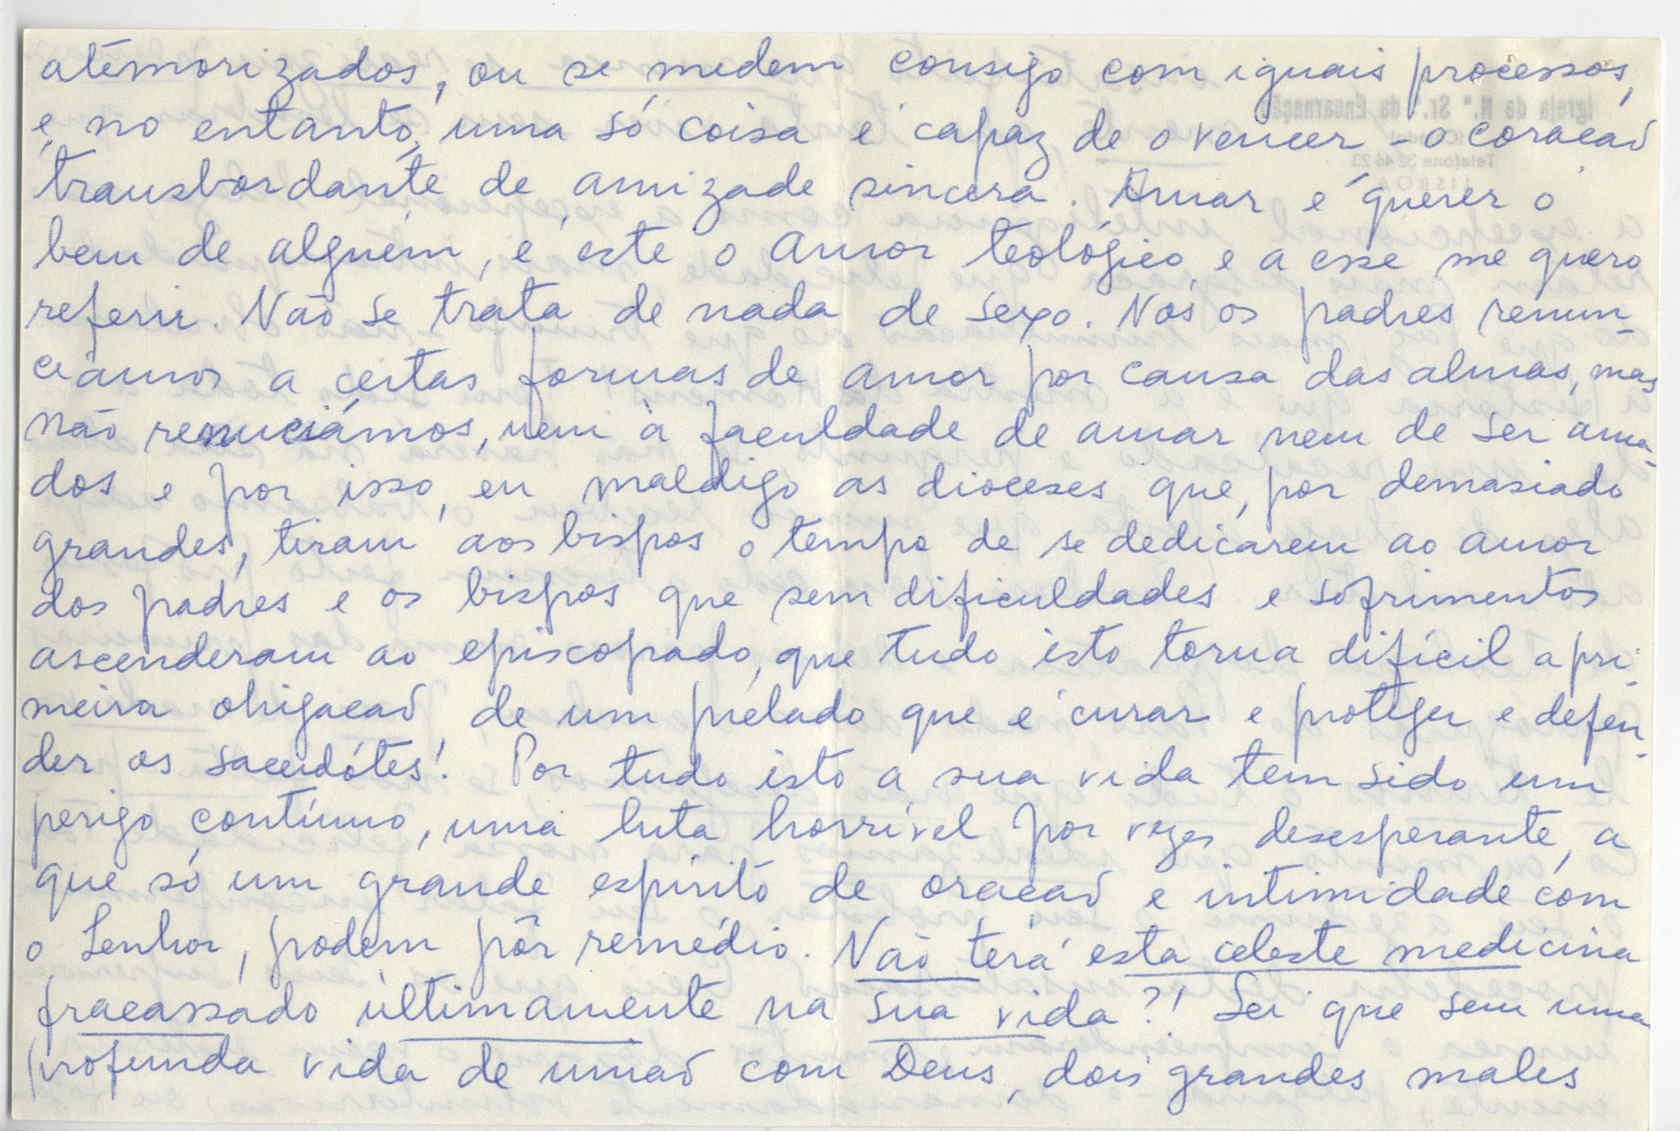 atémorizados, ou se medem consigo com iguais processos,
e, no entanto, uma só coisa é capaz de o vencer - o coração
transbordante de amizade sincera. Amar é querer o
bem de alguém, é este o amor teológico e a esse me quero
referir. Não se trata de nada de sexo. Nós os padres renun-
ciámos a certas formas de amor por causa das almas, mas
não renunciámos, nem à faculdade de amar nem de ser ama-
dos e por isso, eu maldigo as dioceses que, por demasiado
grandes, tiram aos bispos o tempo de se dedicarem ao amor
dos padres e os bispos que sem dificuldades e sofrimentos
ascenderam ao episcopado, que tudo isto torna difícil a pri-
meira obrigação de um prelado que é curar e proteger e defen-
der os sacerdótes! Por tudo isto a sua vida tem sido um
perigo contínuo, uma luta horrível por vezes desesperante, a
que só um grande espírito de oração e intimidade com
o Senhor, podem pôr remédio. Não terá esta celeste medicina
fracassado ùltimamente na sua vida?! Sei que sem uma
profunda vida de união com Deus, dois grandes males